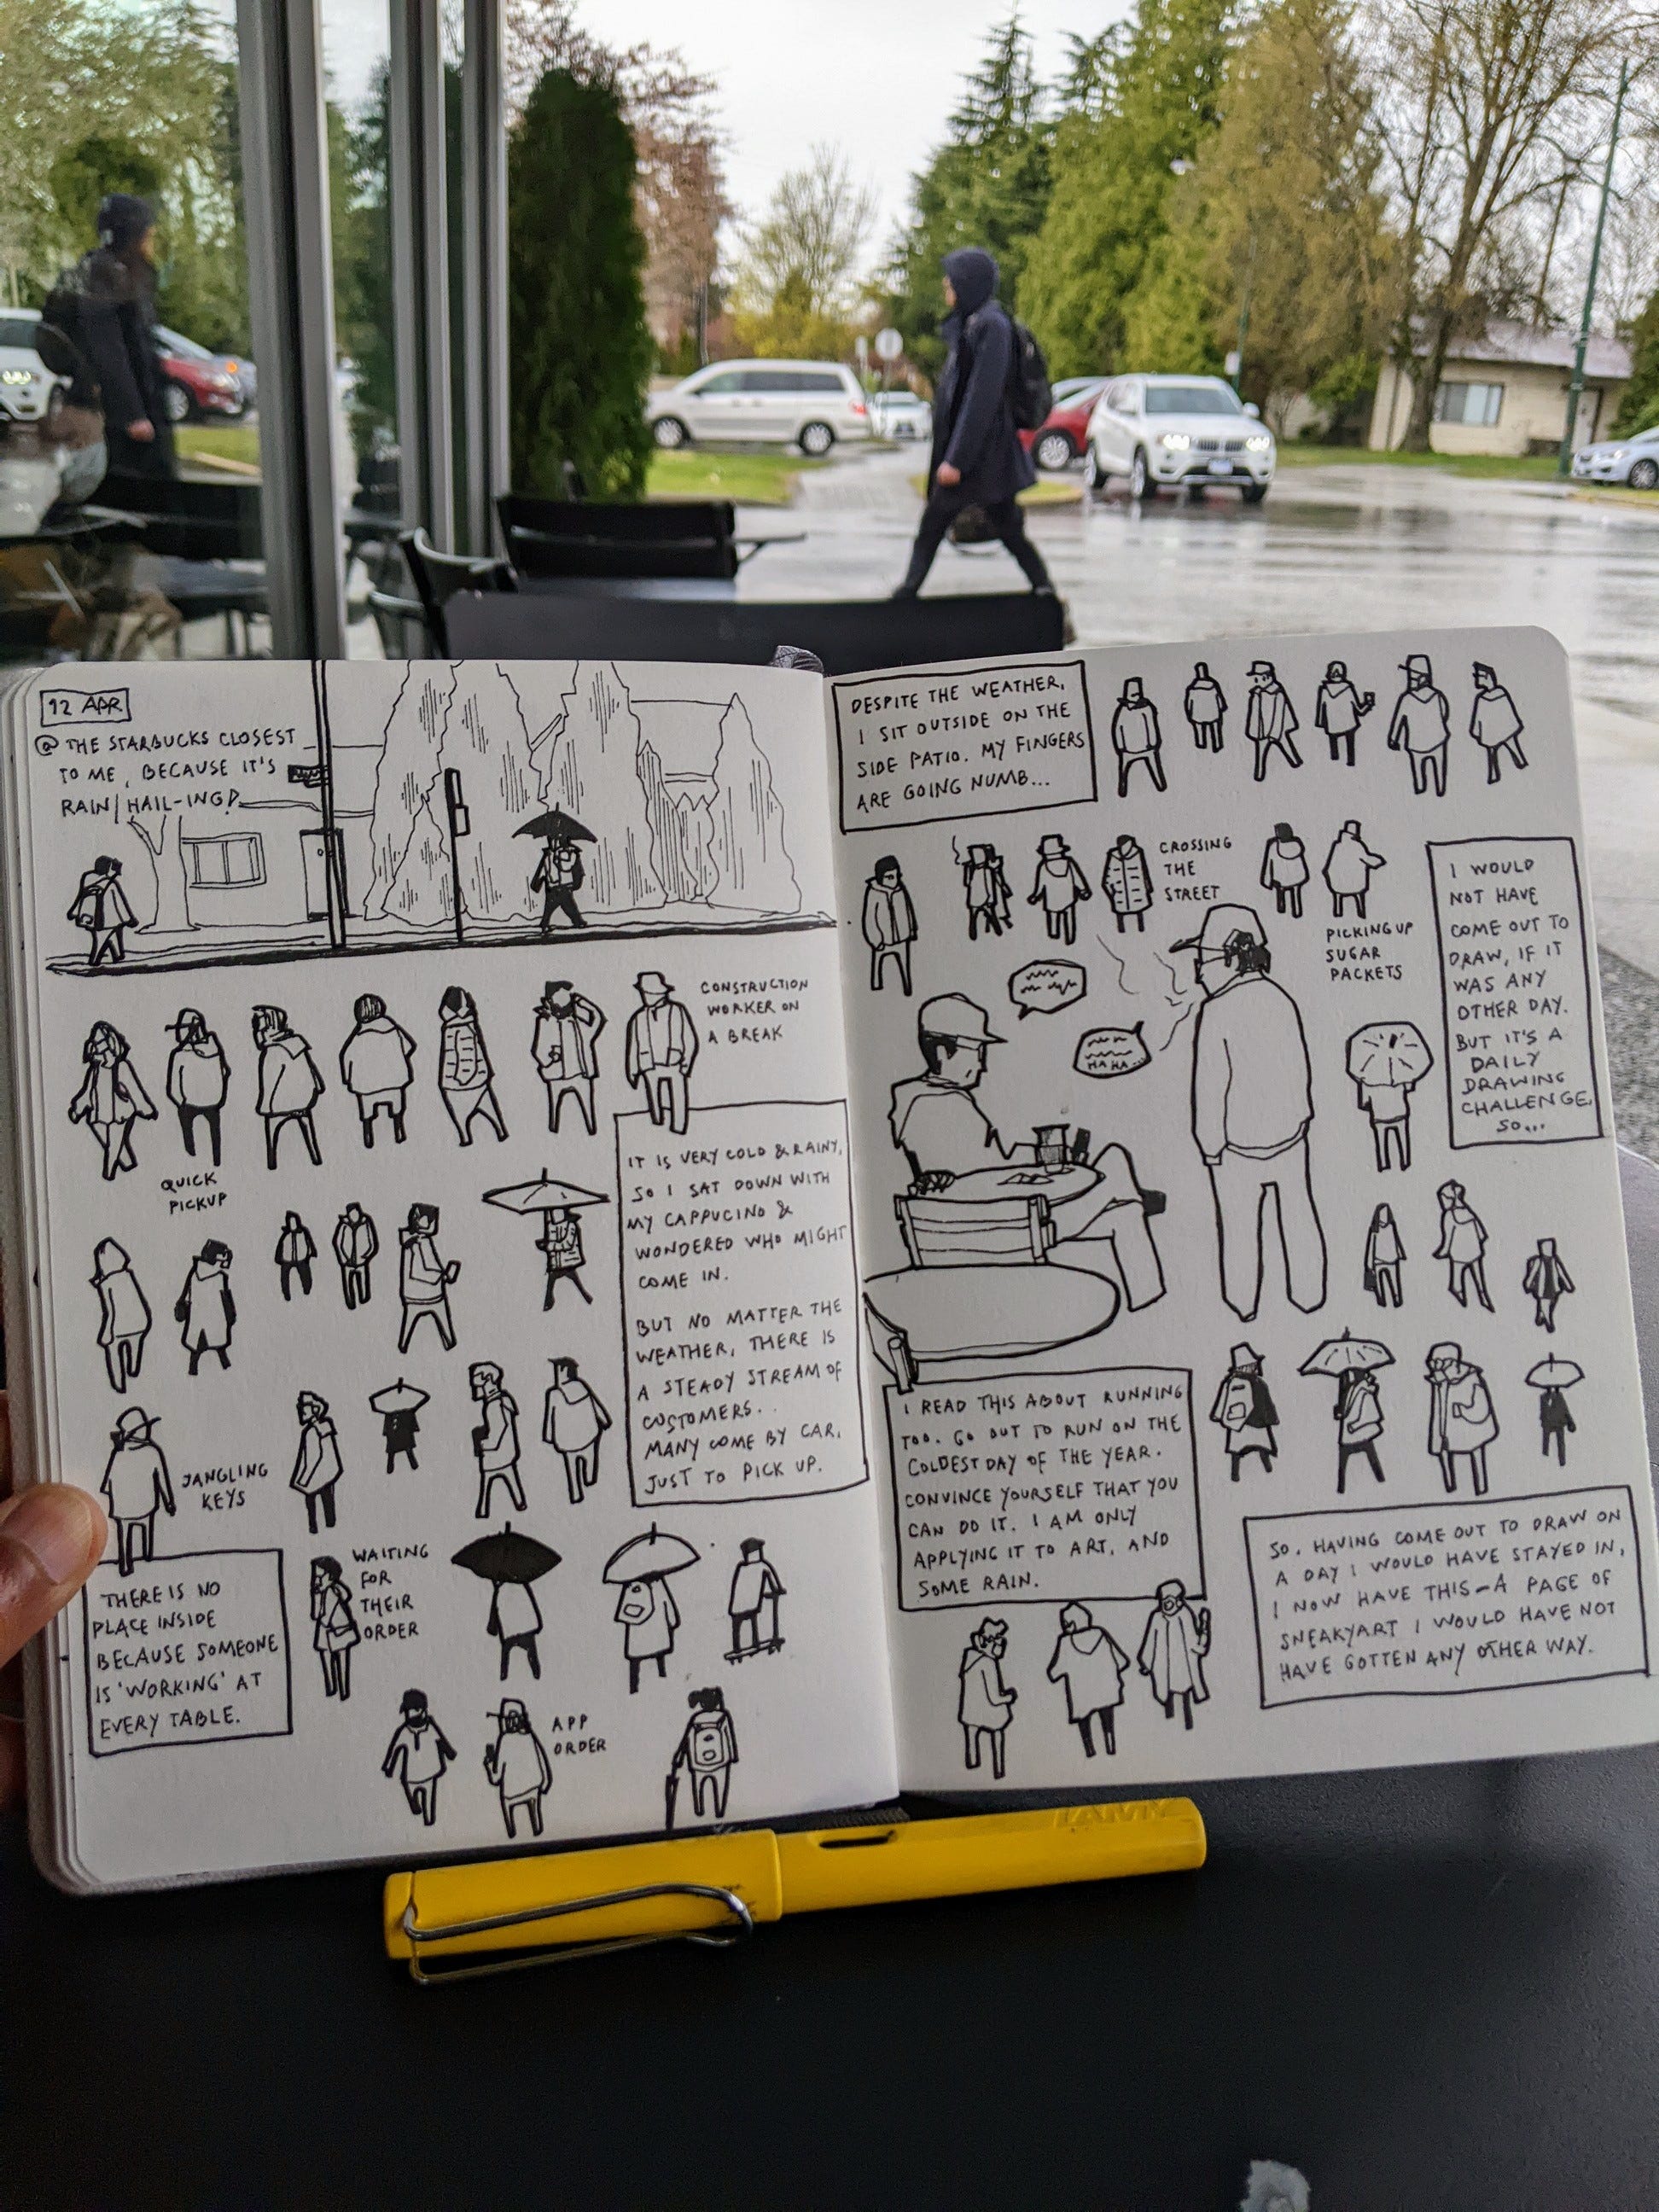 12 APR
@ THE STARBUCKS CLOSEST
TO ME, BECAUSE IT'S
RAIN/HAIL-ING!
CONSTRUCTION
WORKER ON
A BREAK
QUICK
PICKUP
IT IS VERY COLD & RAINY,
SO I SAT DOWN WITH
MY CAPPUCINO &
WONDERED WHO MIGHT
COME IN.
BUT NO MATTER THE
WEATHER, THERE IS
A STEADY STREAM OF
CUSTOMERS..
MANY COME BY CAR,
JUST TO PICK UP.
JANGLING
KEYS
THERE IS NO
PLACE INSIDE
BECAUSE SOMEONE
IS 'WORKING' AT
EVERY TABLE.
WAITING
FOR
THEIR
ORDER
APP
ORDER
DESPITE THE WEATHER,
I SIT OUTSIDE ON THE
SIDE PATIO. MY FINGERS
ARE GOING NUMB...
CROSSING
THE
STREET
PICKING UP
SUGAR
PACKETS
I WOULD
NOT HAVE
COME OUT TO
DRAW, IF IT
WAS ANY
OTHER DAY.
BUT IT'S A
DAILY
DRAWING
CHALLENGE,
SO...
HA HA..
I READ THIS ABOUT RUNNING
TOO. GO OUT TO RUN ON THE
COLDEST DAY OF THE YEAR.
CONVINCE YOURSELF THAT YOU
CAN DO IT. I AM ONLY
APPLYING IT TO ART, AND
SOME RAIN.
SO. HAVING COME OUT TO DRAW ON
A DAY I WOULD HAVE STAYED IN,
I NOW HAVE THIS - A PAGE OF
SNEAKYART I WOULD HAVE NOT
HAVE GOTTEN ANY OTHER WAY.
LAMY